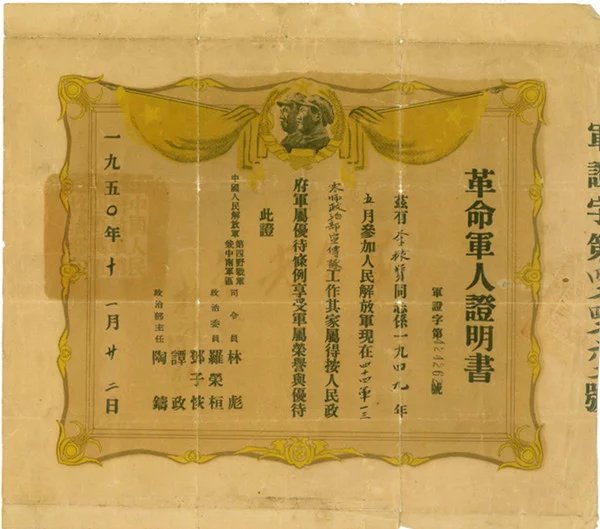 革命軍人證明書
軍證字第 號
茲有李 同志係一九四九年
五月參加人民解放軍現在四十四軍一三
政治部宣傳 工作其家屬得按人民政
府軍屬優待條例享受軍屬榮譽與優待
此證
中國人民解放軍第四野戰軍
兼中南軍區
司令員 林彪
政治委員 羅榮桓
鄧子恢
譚政
政治部主任 陶鑄
一九五〇年十一月廿二日
軍證字第
號